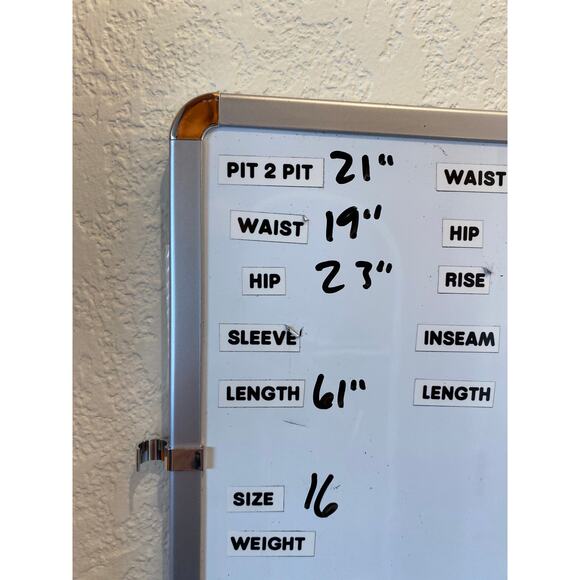 PIT 2 PIT 21" WAIST
WAIST 19" HIP
HIP 23" RISE
SLEEVE INSEAM
LENGTH 61" LENGTH
SIZE 16
WEIGHT